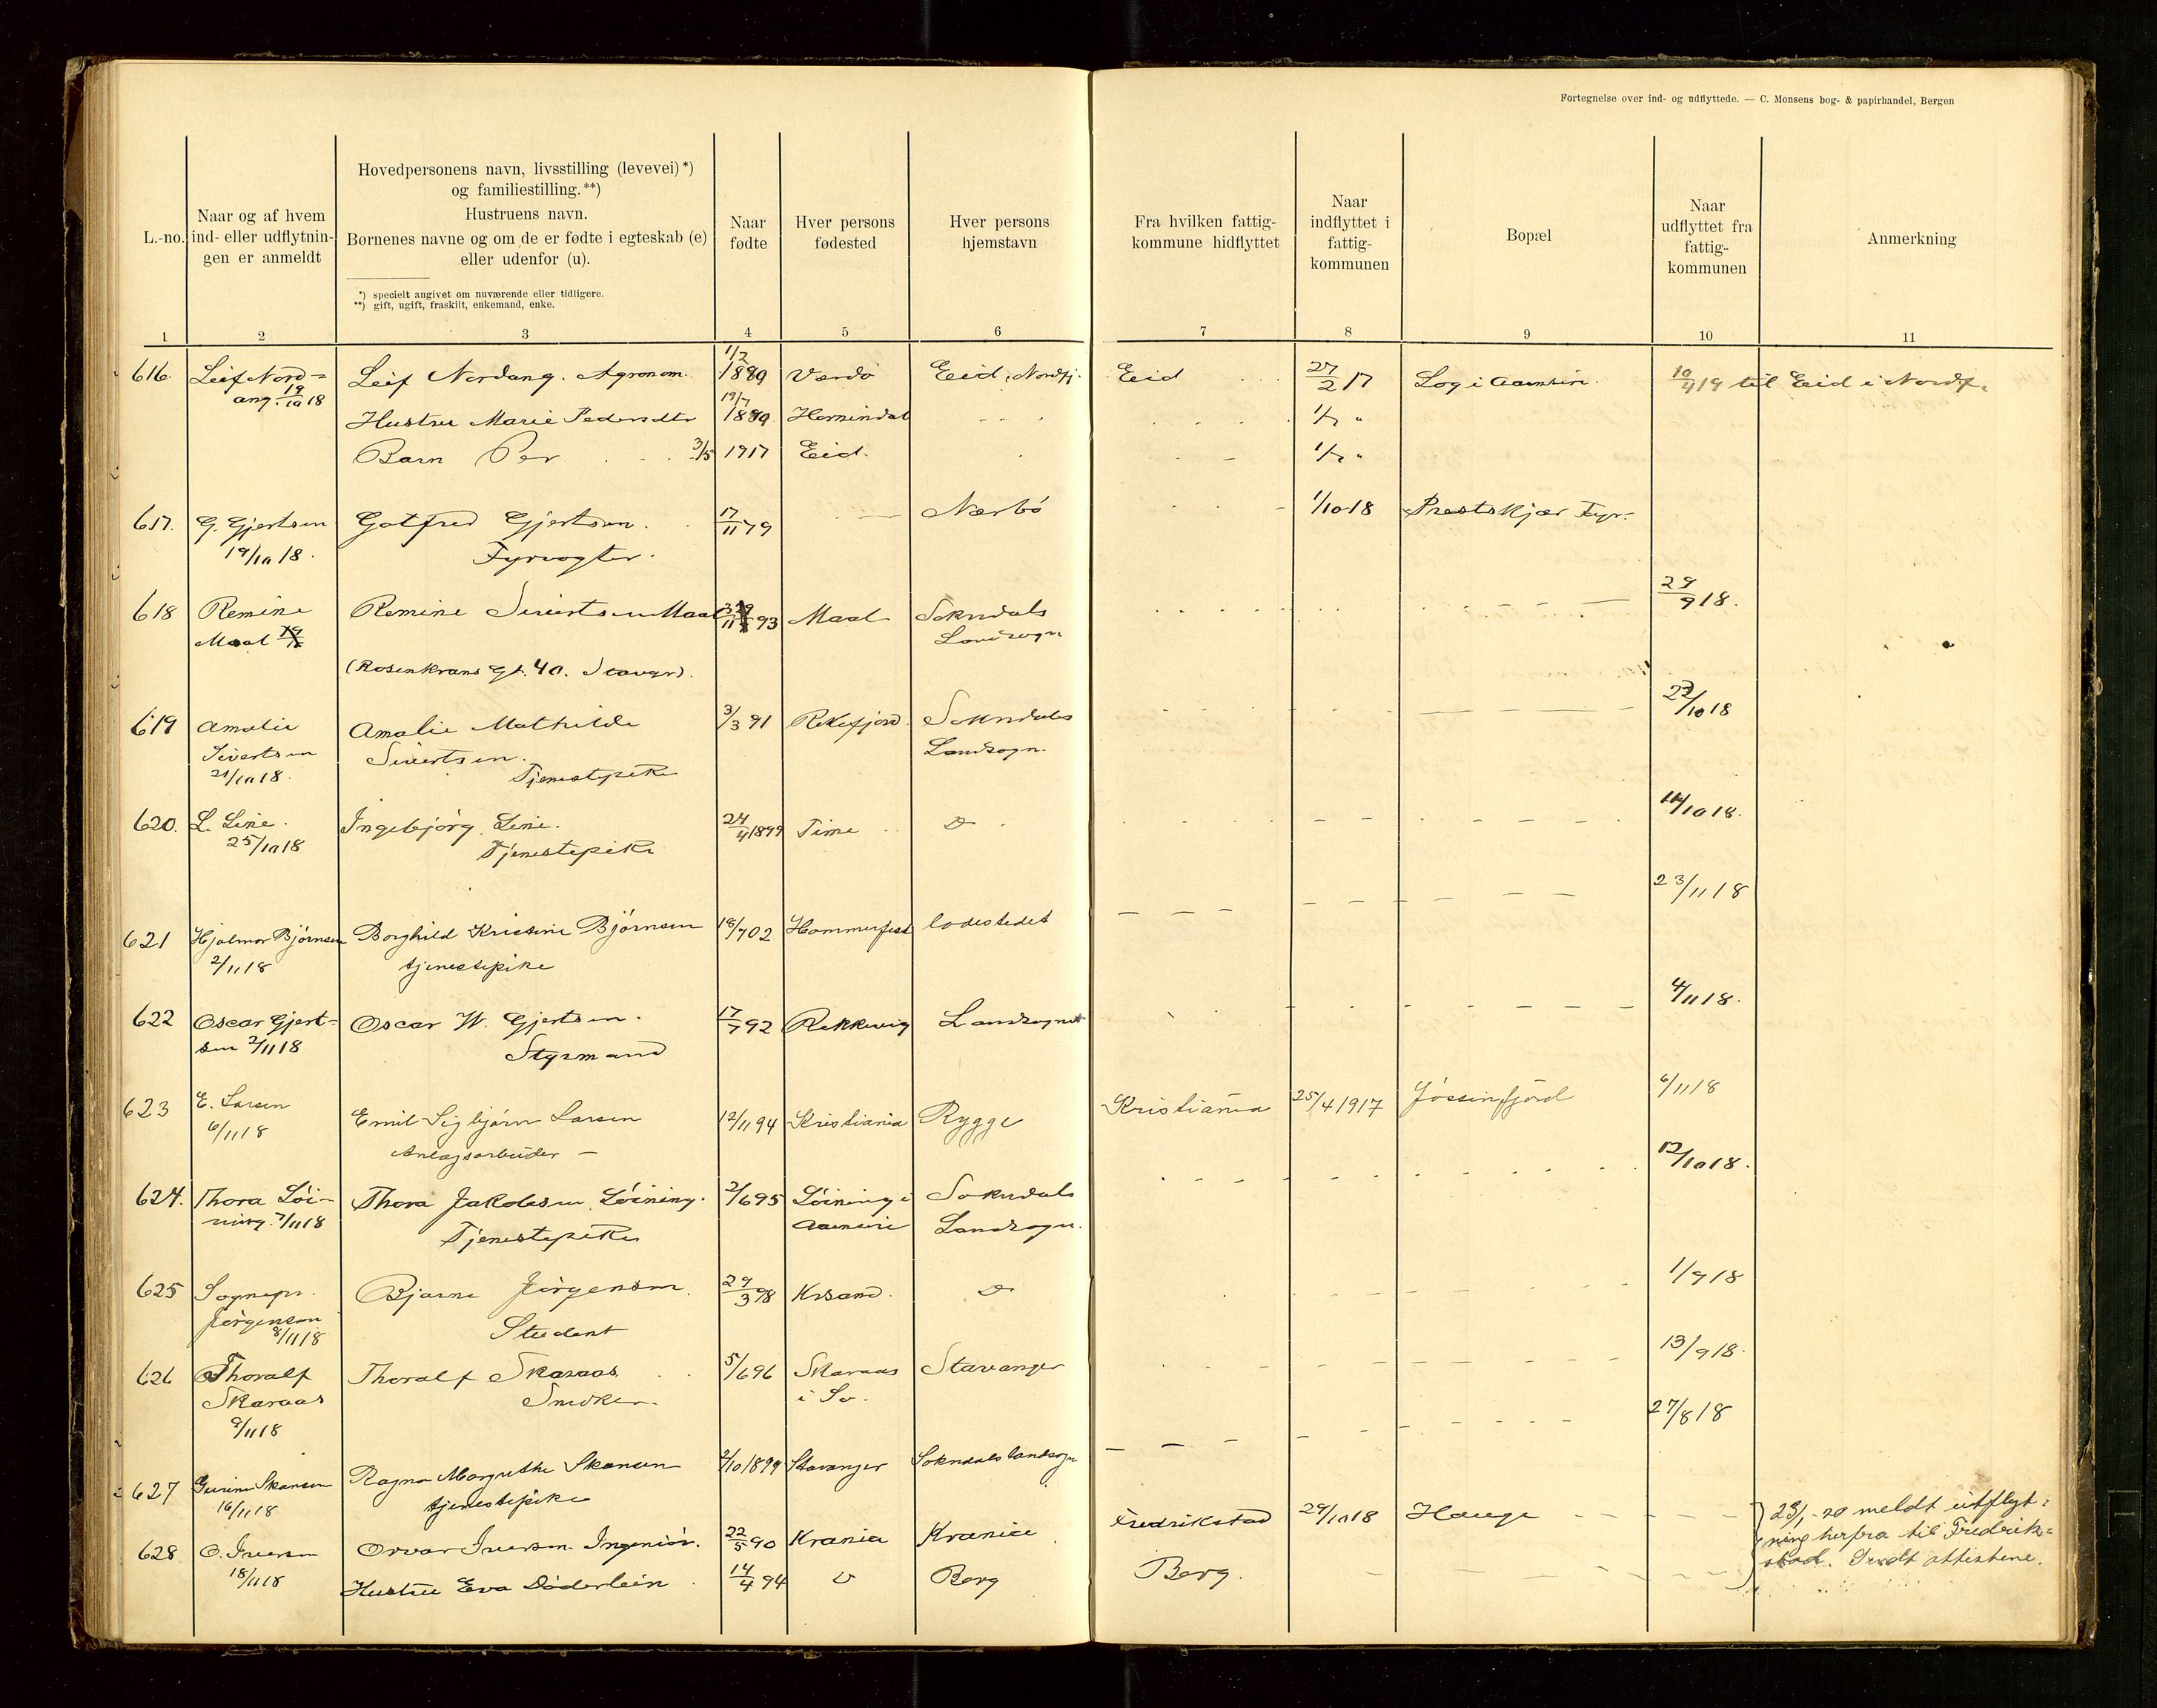 Fortegnelse over ind- og udflyttede. — C. Monsens bog- & papirhandel, Bergen
L.-no.
Naar og af hvem
ind- eller udflytnin-
gen er anmeldt
Hovedpersonens navn, livsstilling (levevei)*)
og familiestilling.**)
Hustruens navn.
Børnenes navne og om de er fødte i egteskab (e)
eller udenfor (u).
*) specielt angivet om nuværende eller tidligere.
**) gift, ugift, fraskilt, enkemand, enke.
Naar
fødte
Hver persons
fødested
Hver persons
hjemstavn
Fra hvilken fattig-
kommune hidflyttet
Naar
indflyttet i
fattig-
kommunen
Bopæl
Naar
udflyttet fra
fattig-
kommunen
Anmerkning
1 2 3 4 5 6 7 8 9 10 11
616. Leif Nord= Leif Nordang. Agronom. 1/2 1889 Vardø Eeid, Nordfj. Eid 27/2 17 Log i 10/4 19 til Eid i Nordf.
ang. 19/10 18
Hustru Marie Pedersdtr 19/7 1889 Hornindal 1/7 "
Barn Per 3/5 1917 Eid. 1/7 "
617. G. Gjertsen Gotfred Gjertsen. 17/11 79 — Nærbö 1/10 18 Prestskjær Fyr.
19/10 18. Fyrvogter.
618 Remine Remine Sivertsen Maal 93 Maal Sokndals 29/9 18.
Maal Landsogn
(Rosenkrans Gt. 40. Stavgr).
619 Amalie Amalie Mathilde 3/3 91 Rekefjord. Sokndals 27/10 18
Sivertsen Sivertsen. Landsogn.
21/10 18. Tjenestepike
620. L. Line. Ingebjörg Line. 24/4 1899 Time 14/10 18.
25/10 18 Tjenestepike
621 Hjalmar Björnsen Borghild Kristine Björnsen 18/7 02 Hammerfest ladestedet 23/11 18
2/11 18 tjenestepike
622 Oscar Gjert- Oscar W. Gjertsen. 17/7 92 Rekkevig Landsognet 4/11 18.
sen 2/11 18 Styrmand
623 E. Larsen Emil Sigbjörn Larsen 12/11 94 Kristiania Rygge Kristiania 25/4 1917 Jössinfjord 6/11 18
6/11 18 Anlægsarbeider —
624. Thora Löi- Thora Jakobsen Löining. 2/6 95 Löining i Sokndals 12/10 18.
ning. 7/11 18 Tjenestepike Landsogn.
625 Sognepr. Bjarne Jörgensen. 29/3 98 Krsand. 1/9 18
Jörgensen Student
8/11 18
626 Thoralf Thoralf Skaraas 5/6 96 Skaraas Stavanger 13/9 18.
Skaraas Snedker. i So.
9/11 18
627 Skansen Ragna Margrethe Skansen 2/10 1899 Stavanger Sokndals landsogn 27/8 18
16/11 18 tjenestepike
628 O. Iversen Orvar Iversen. Ingeniör. 22/5 90 Krania Krania Fredrikstad 29/10 18 Hauge
18/11 18 Hustru Eva Döderlein 14/4 94 Berg Berg.
meldt utflyt=
ning herfra til Fredrik=
stad. Sendt attestene.